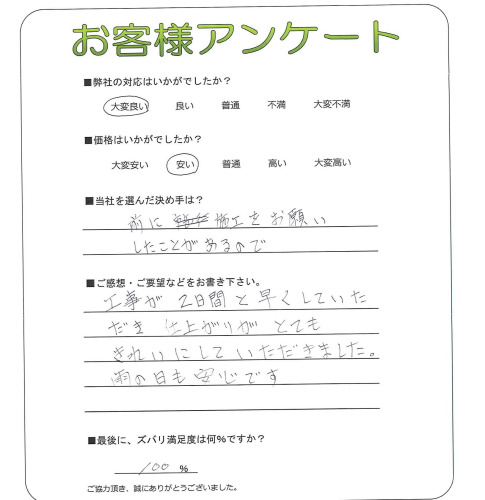 お客様アンケート
■弊社の対応はいかがでしたか？
大変良い 良い 普通 不満 大変不満
■価格はいかがでしたか？
大変安い 安い 普通 高い 大変高い
■当社を選んだ決め手は？
前に 施工をお願い
したことがあるので
■ご感想・ご要望などをお書き下さい。
工事が 2日間と早くしていた
だき 仕上がりが とても
きれいにして いただきました。
雨の日も安心です
■最後に、ズバリ満足度は何%ですか？
100 %
ご協力頂き、誠にありがとうございました。